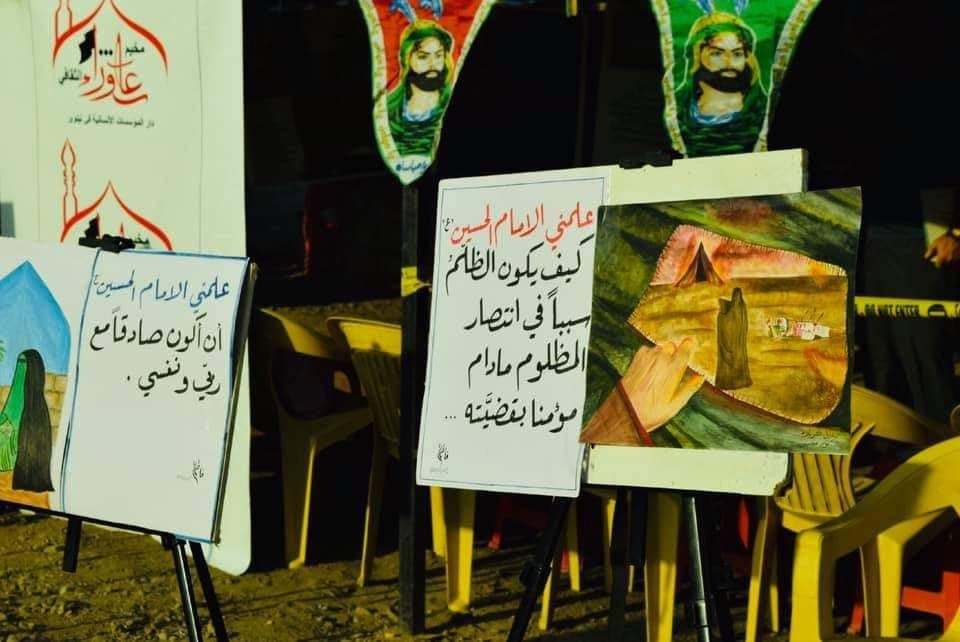 مخيم
عاشوراء
الثقافي
دار المؤسسات الانسانية في نينوى
علمني الامام الحسين "ع"
أن أكون صادقاً مع
ربّي ونفسي .
علمني الامام الحسين "ع"
كيف يكون الظلّمُ
سبباً في انتصار
المظلوم مادام
مؤمنا بقضيَّته ...
DO NOT ENTER